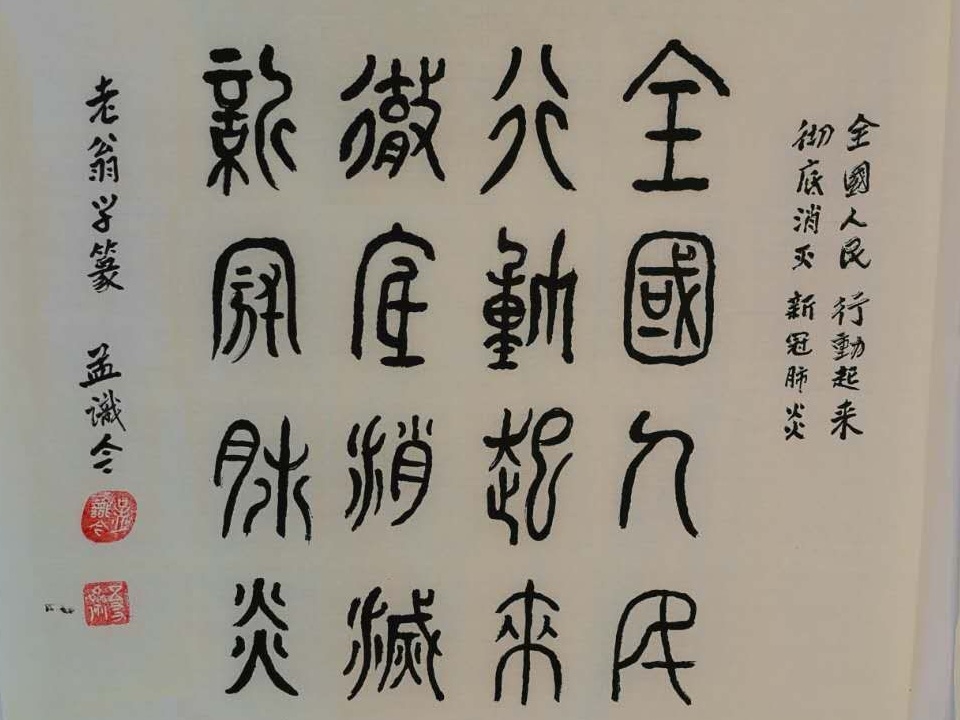 全國人民 行動起来
彻底消灭 新冠肺炎
全國人民
行動起來
徹底消滅
新冠肺炎
老翁学篆 孟識令
孟識令